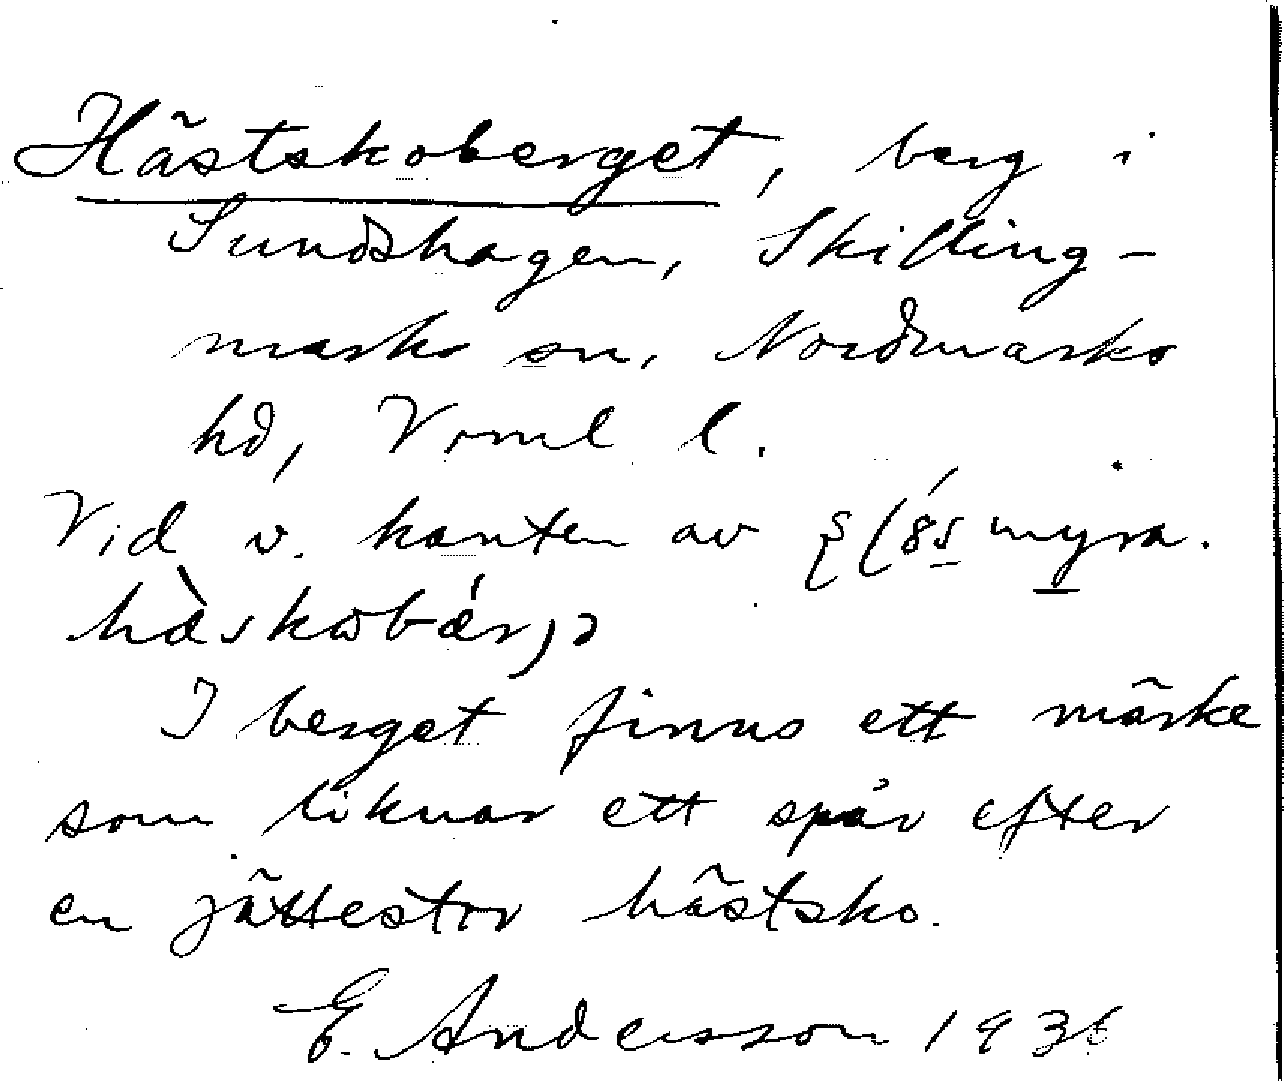 Hästskoberget, berg i
Sundshagen, Skilling-
marks sn, Nordmarks
hd, Vrml l.
Vid v. kanten av myra.
hàskobǽr,
I berget finns ett märke
som liknar ett spår efter
en jättestor hästsko.
E. Andersson 1936